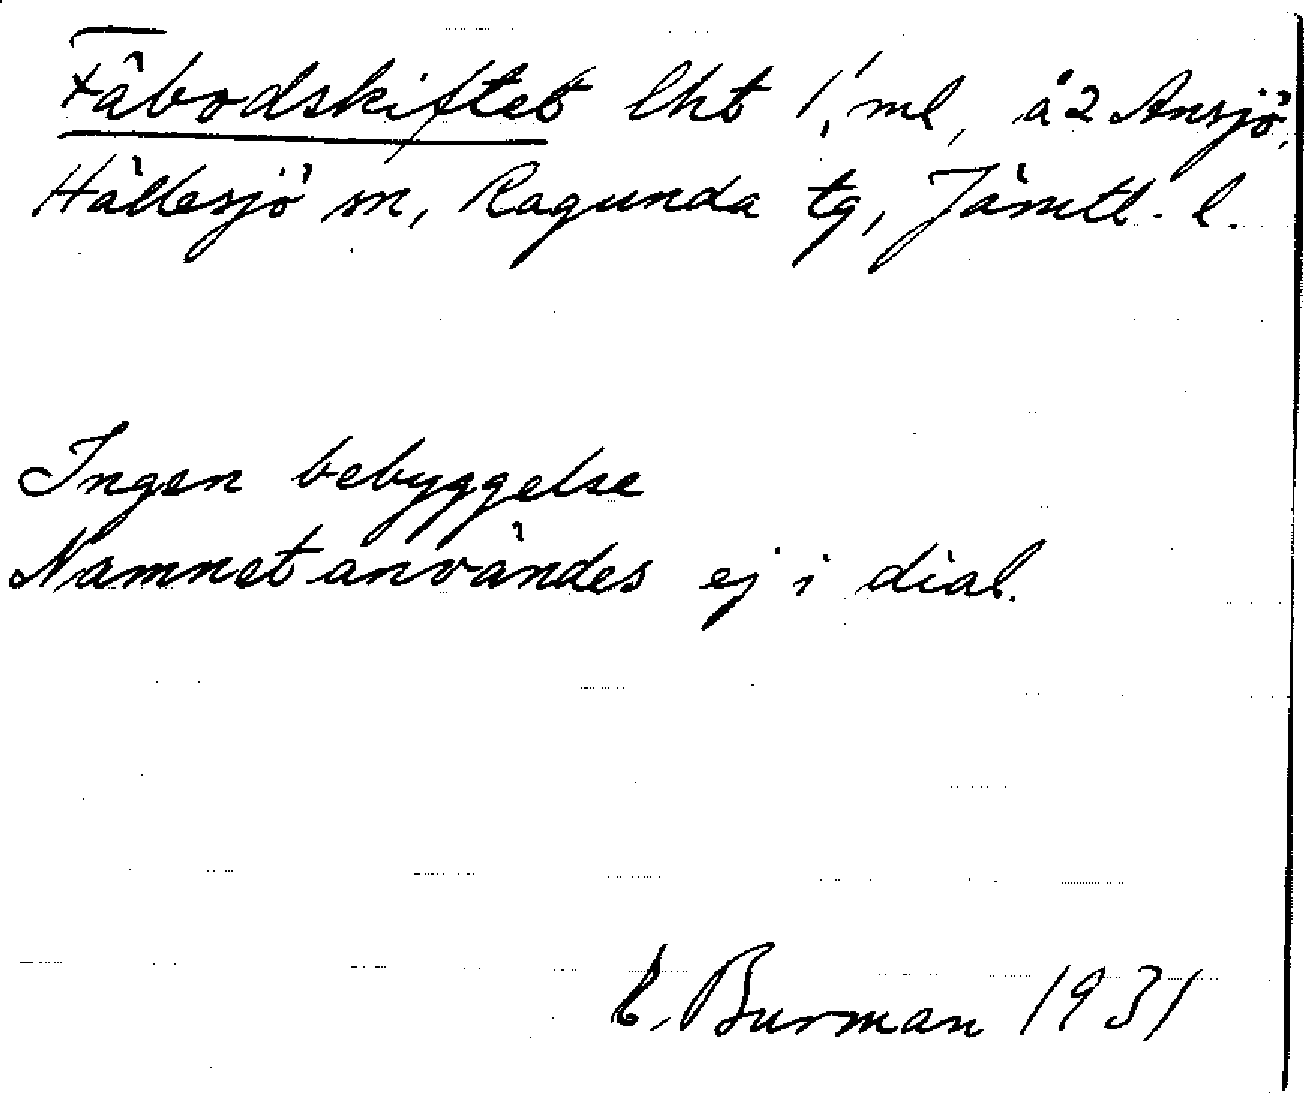 Fäbodskiftet lht 1, ml, å 2 Ansjö,
Hällesjö sn, Ragunda tg, Jämtl. l.
Ingen bebyggelse
Namnet användes ej i dial.
E. Burman 1931